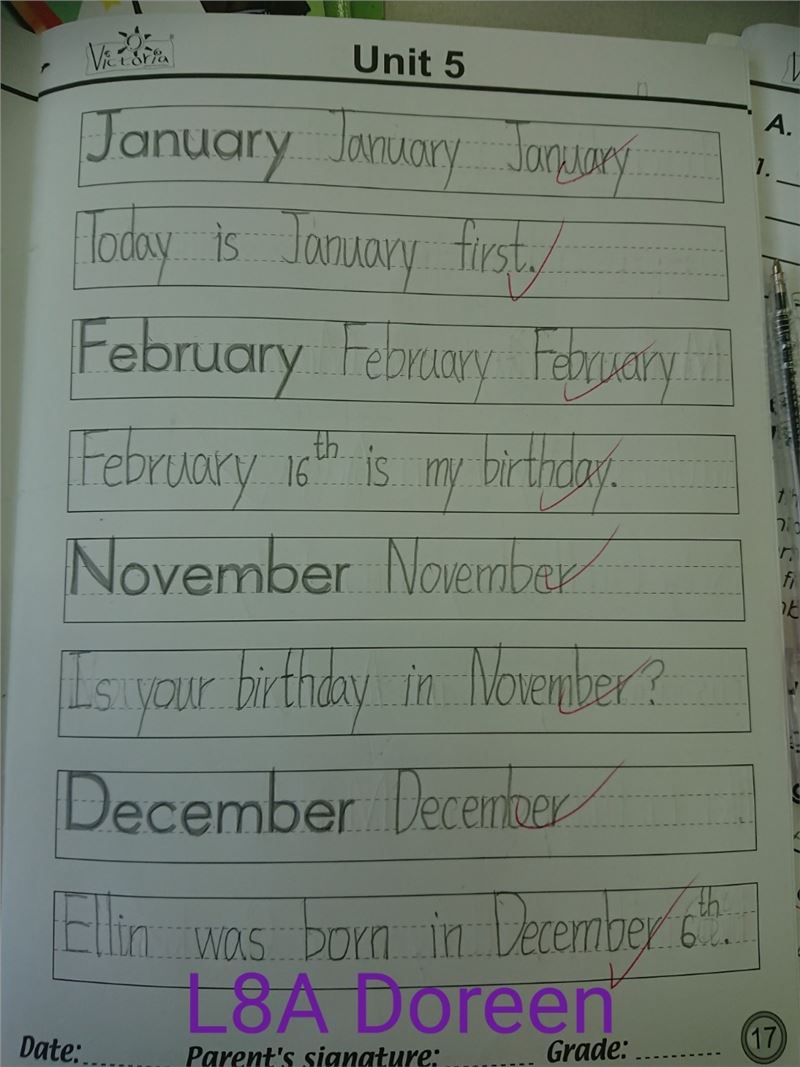 Victoria
Unit 5
January January January
Today is January first.
February February February
February 16th is my birthday.
November November
Is your birthday in November?
December December
Ellin was born in December 6th.
L8A Doreen
Date: Parent's signature: Grade:
17
A.
1.